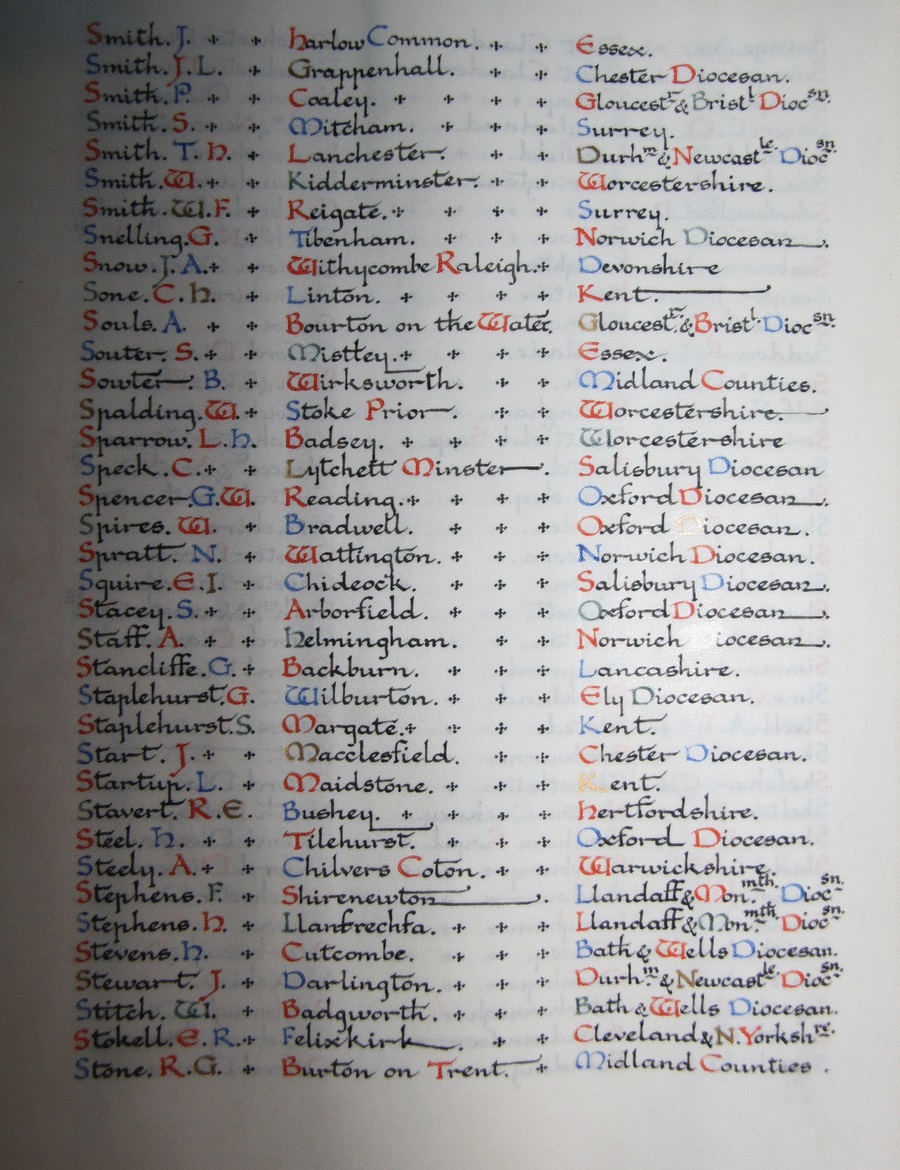 Smith. J. Harlow Common. Essex.
Smith. J. L. Grappenhall. Chester Diocesan.
Smith. P. Coaley. Gloucestr. & Bristl. Diocsn.
Smith. S. Mitcham. Surrey.
Smith. T. H. Lanchester. Durhm. & Newcastle. Diocsn.
Smith. W. Kidderminster. Worcestershire.
Smith. W. F. Reigate. Surrey.
Snelling. G. Tibenham. Norwich Diocesan.
Snow. J. A. Withycombe Raleigh. Devonshire
Sone. C. H. Linton. Kent.
Souls. A. Bourton on the Water. Gloucestr. & Bristl. Diocsn.
Souter. S. Mistley. Essex.
Sowter. B. Wirksworth. Midland Counties.
Spalding. W. Stoke Prior. Worcestershire.
Sparrow. L. H. Badsey. Worcestershire
Speck. C. Lytchett Minster. Salisbury Diocesan
Spencer. G. W. Reading. Oxford Diocesan.
Spires. W. Bradwell. Oxford Diocesan.
Spratt. N. Wattington. Norwich Diocesan.
Squire. E. J. Chideock. Salisbury Diocesan.
Stacey. S. Arborfield. Oxford Diocesan.
Staff. A. Helmingham. Norwich Diocesan.
Stancliffe. G. Backburn. Lancashire.
Staplehurst. G. Wilburton. Ely Diocesan.
Staplehurst. S. Margate. Kent.
Start. J. Macclesfield. Chester Diocesan.
Startup. L. Maidstone. Kent.
Stavert. R. E. Bushey. Hertfordshire.
Steel. H. Tilehurst. Oxford Diocesan.
Steely. A. Chilvers Coton. Warwickshire.
Stephens. F. Shirenewton. Llandaff & Mon.mth. Diocsn.
Stephens. H. Llanfrechfa. Llandaff & Mon.mth. Diocsn.
Stevens. H. Cutcombe. Bath & Wells Diocesan.
Stewart. J. Darlington. Durhm. & Newcastle. Diocsn.
Stitch. W. Badgworth. Bath & Wells Diocesan.
Stokell. E. R. Felixkirk. Cleveland & N. Yorkshre.
Stone. R. G. Burton on Trent. Midland Counties.